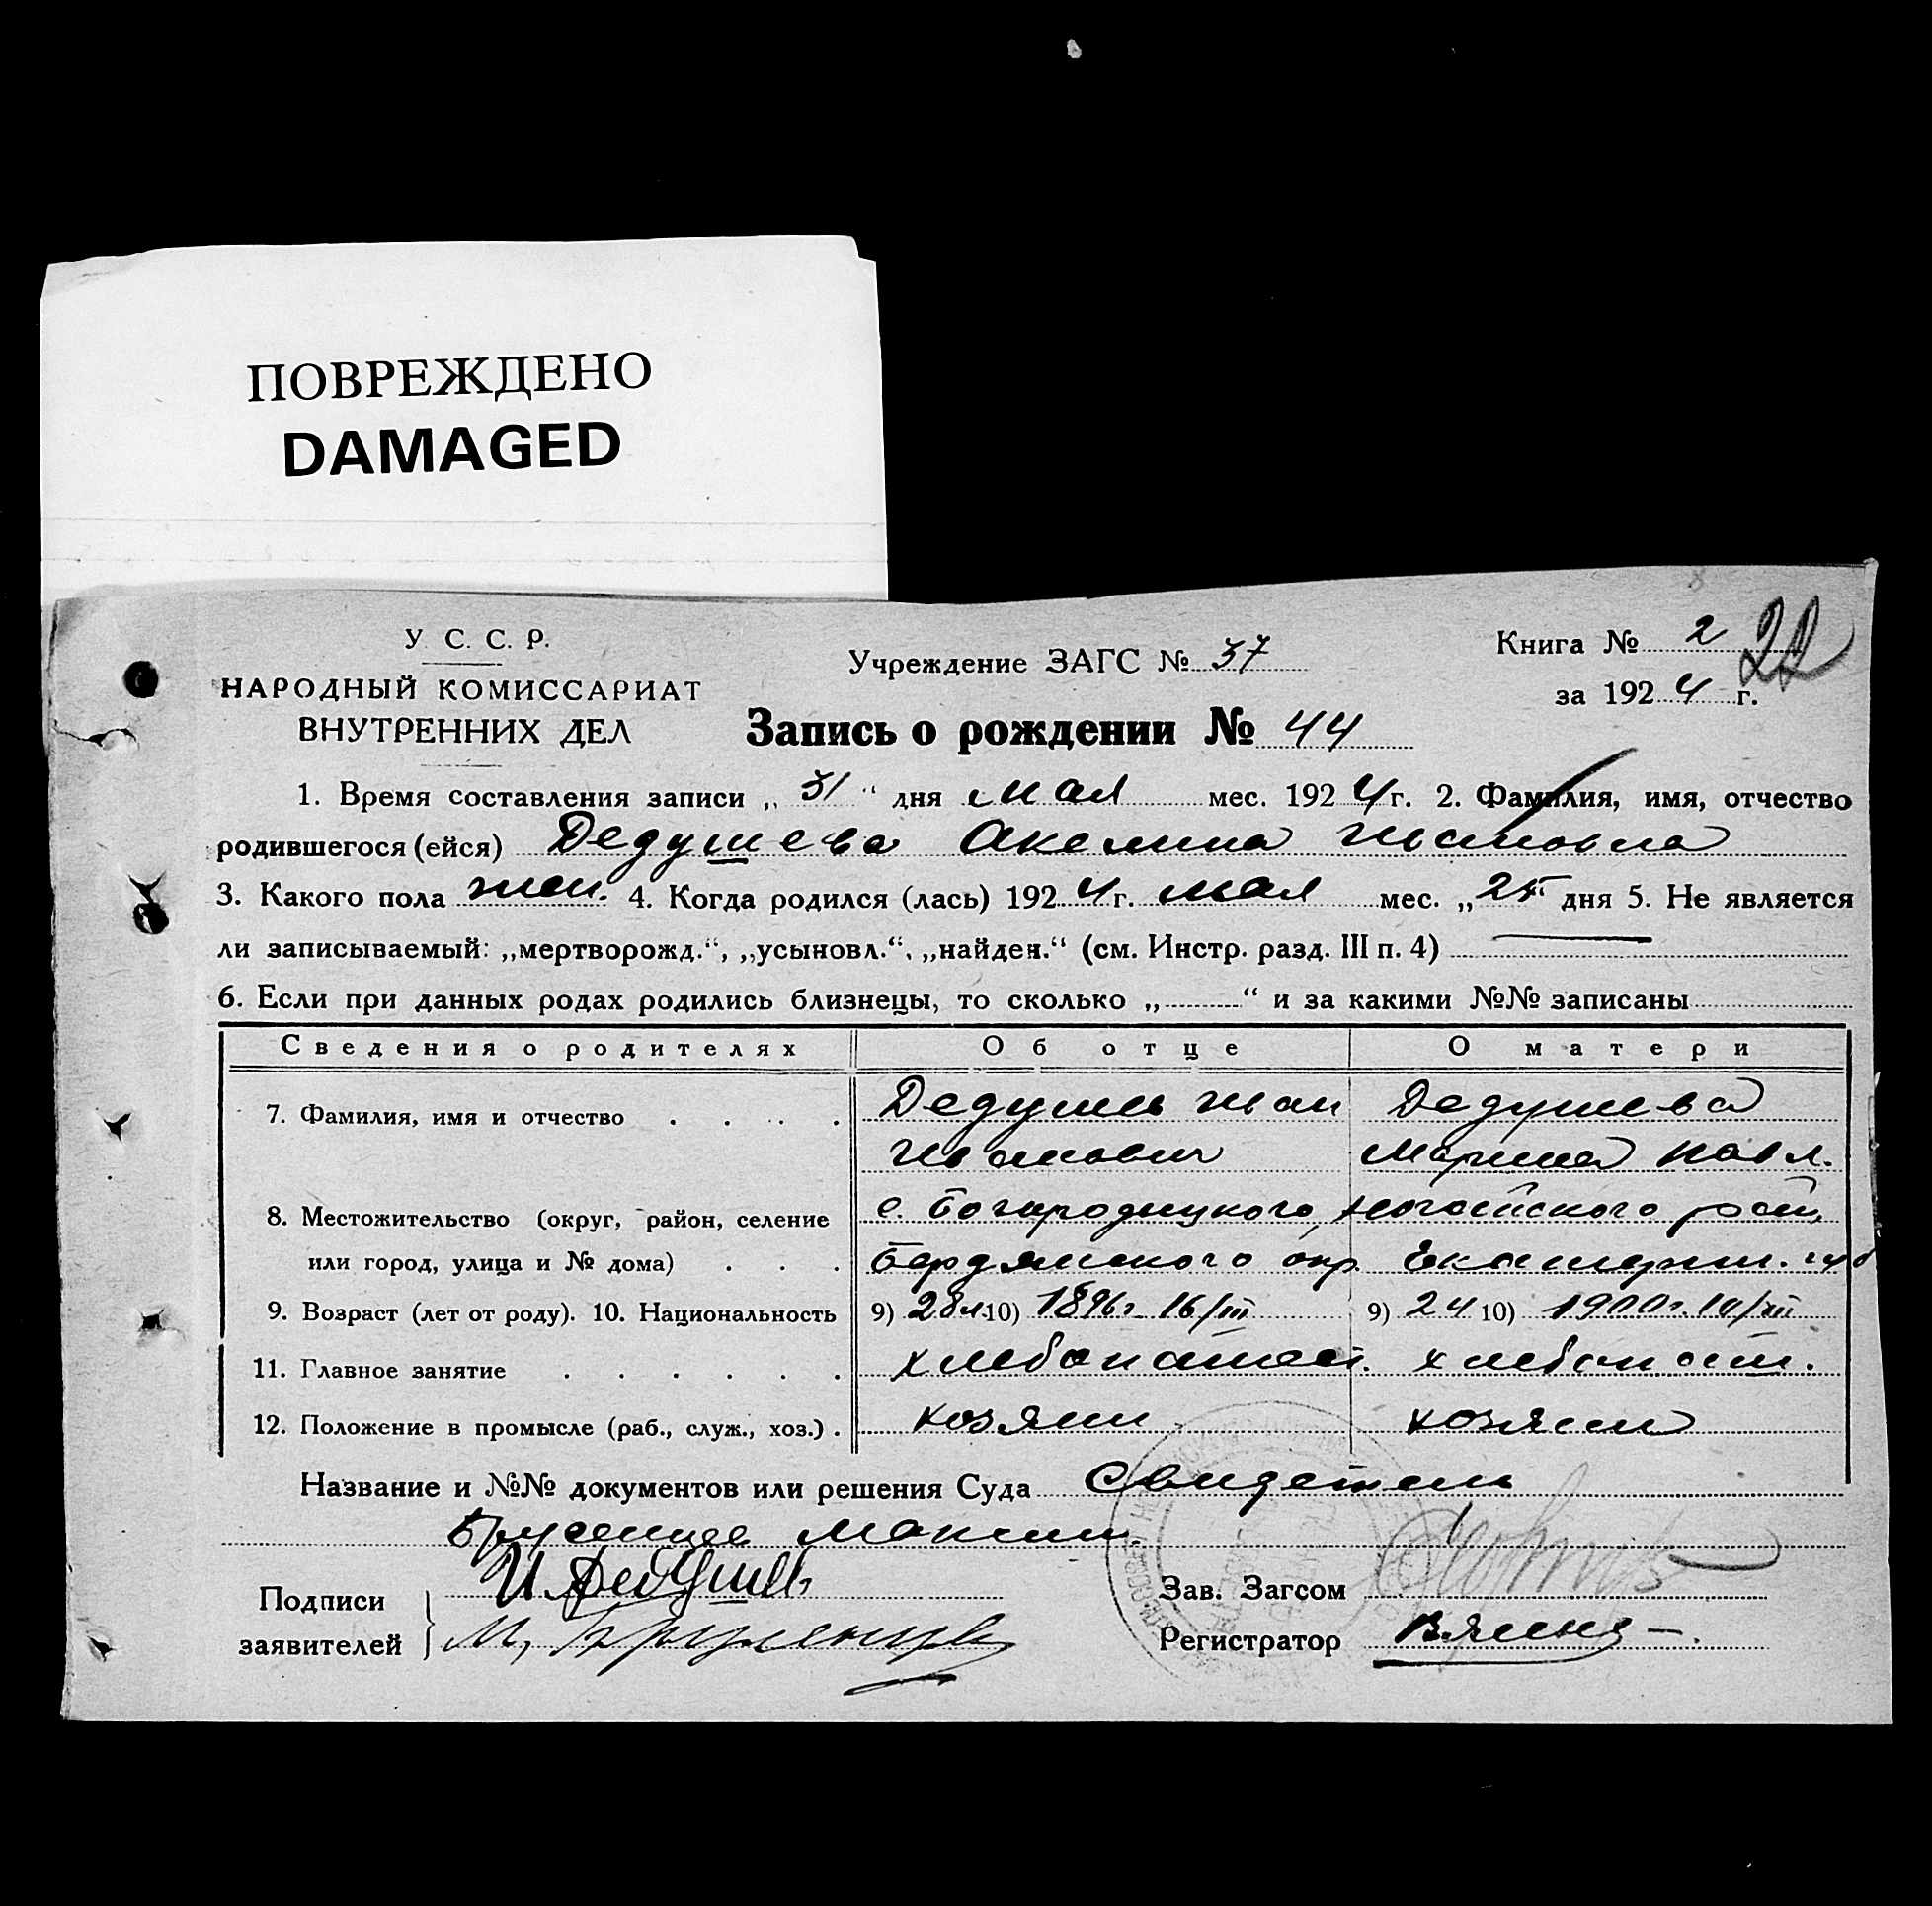 ПОВРЕЖДЕНО
DAMAGED
У. С. С. Р.
НАРОДНЫЙ КОМИССАРИАТ
ВНУТРЕННИХ ДЕЛ
Учреждение ЗАГС № 37
Книга № 2 22
за 1924 г.
Запись о рождении № 44
1. Время составления записи „31“ дня мая мес. 1924 г. 2. Фамилия, имя, отчество
родившегося (ейся) Дедушева Акелина Ивановна
3. Какого пола жен. 4. Когда родился (лась) 1924 г. мая мес. „25 дня 5. Не является
ли записываемый: „мертворожд.“, „усыновл.“, „найден.“ (см. Инстр. разд. III п. 4) —
6. Если при данных родах родились близнецы, то сколько „ “ и за какими №№ записаны
Сведения о родителях Об отце О матери
7. Фамилия, имя и отчество . . . . Дедушев Иван Дедушева
Иванович Марина Павл.
8. Местожительство (округ, район, селение с. Богородицкого, Ногайского рай.,
или город, улица и № дома) . . . Бердянского окр. Екатерин. губ
9. Возраст (лет от роду). 10. Национальность 9) 28 л. 10) 1896 г. 16/III 9) 24 10) 1900 г.
11. Главное занятие . . . . . . хлебопашест. хлебопашт.
12. Положение в промысле (раб., служ., хоз.) . хозяин хозяин
Название и №№ документов или решения Суда Свидетель
Максим
Подписи И Дедушев Зав. Загсом
заявителей М. Регистратор